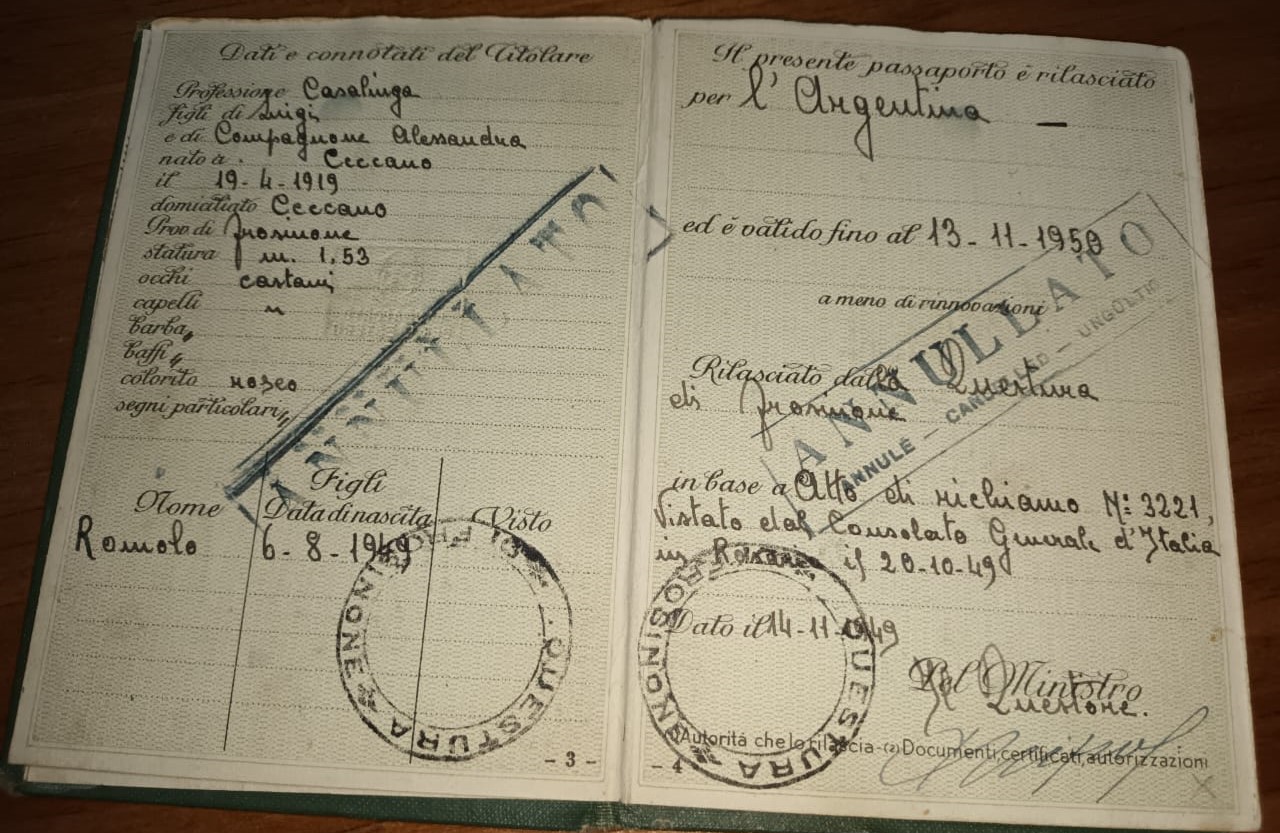 Dati e connotati del Titolare
Professione Casalinga
figli di Luigi
e di Compagnone Alessandra
nato a Ceccano
il 19-4-1919
domiciliato Ceccano
Prov. di Frosinone
statura m. 1,53
occhi castani
capelli "
barba "
baffi "
colorito roseo
segni particolari "
ANNULLATO
Figli
Nome Data di nascita Visto
Romolo 6-8-1949
QUESTURA DI FROSINONE
- 3 -
Il presente passaporto è rilasciato
per l'Argentina —
ed è valido fino al 13-11-1950
a meno di rinnovazioni
ANNULLATO
ANNULÉ - CANCELLED - UNGÜLTIG
Rilasciato dalla Questura
di Frosinone
in base a Atto di richiamo N: 3221,
Vistato dal Consolato Generale d'Italia
in Rosario il 20-10-49
Dato il 14-11-1949
QUESTURA FROSINONE
Pel Ministro
Il Questore.
Autorità che lo rilascia-(2)Documenti,certificati,autorizzazioni
- 4